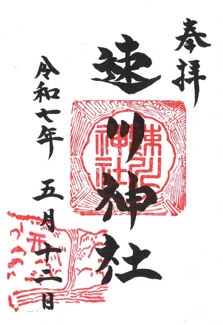 奉拝
速川神社
速川神社
令和七年 五月十三日